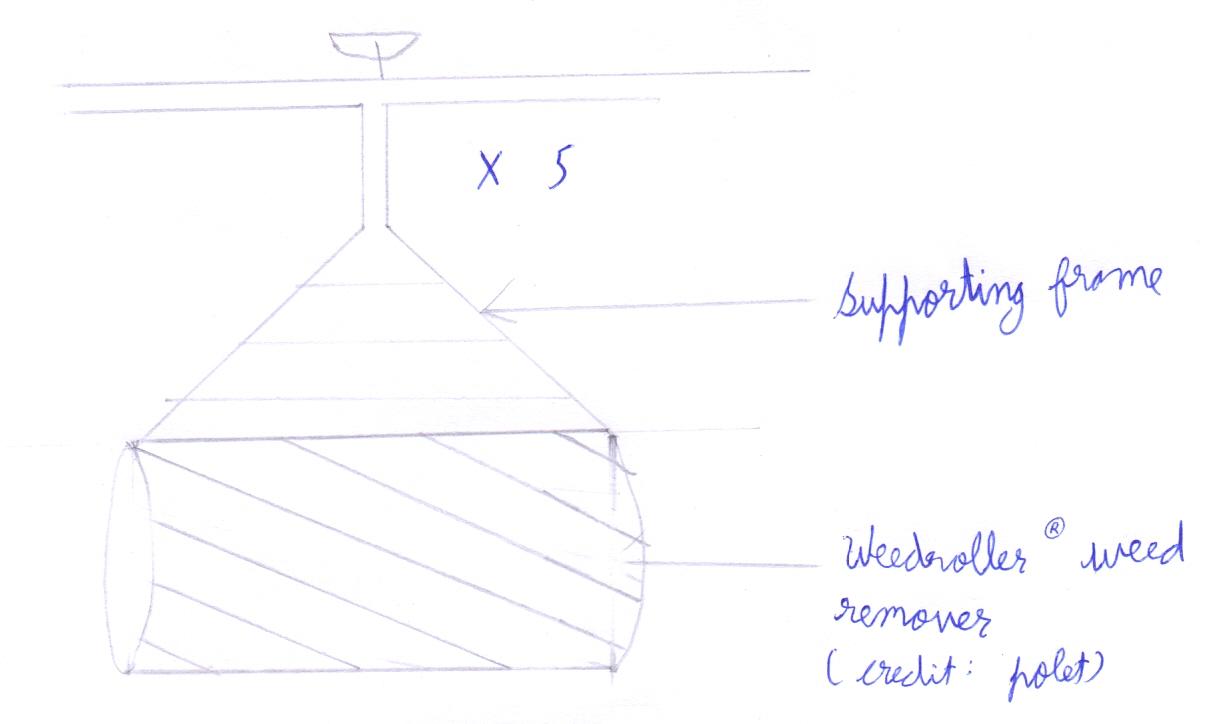 X 5
supporting frame
Weedroller ® weed
remover
(credit: polet)